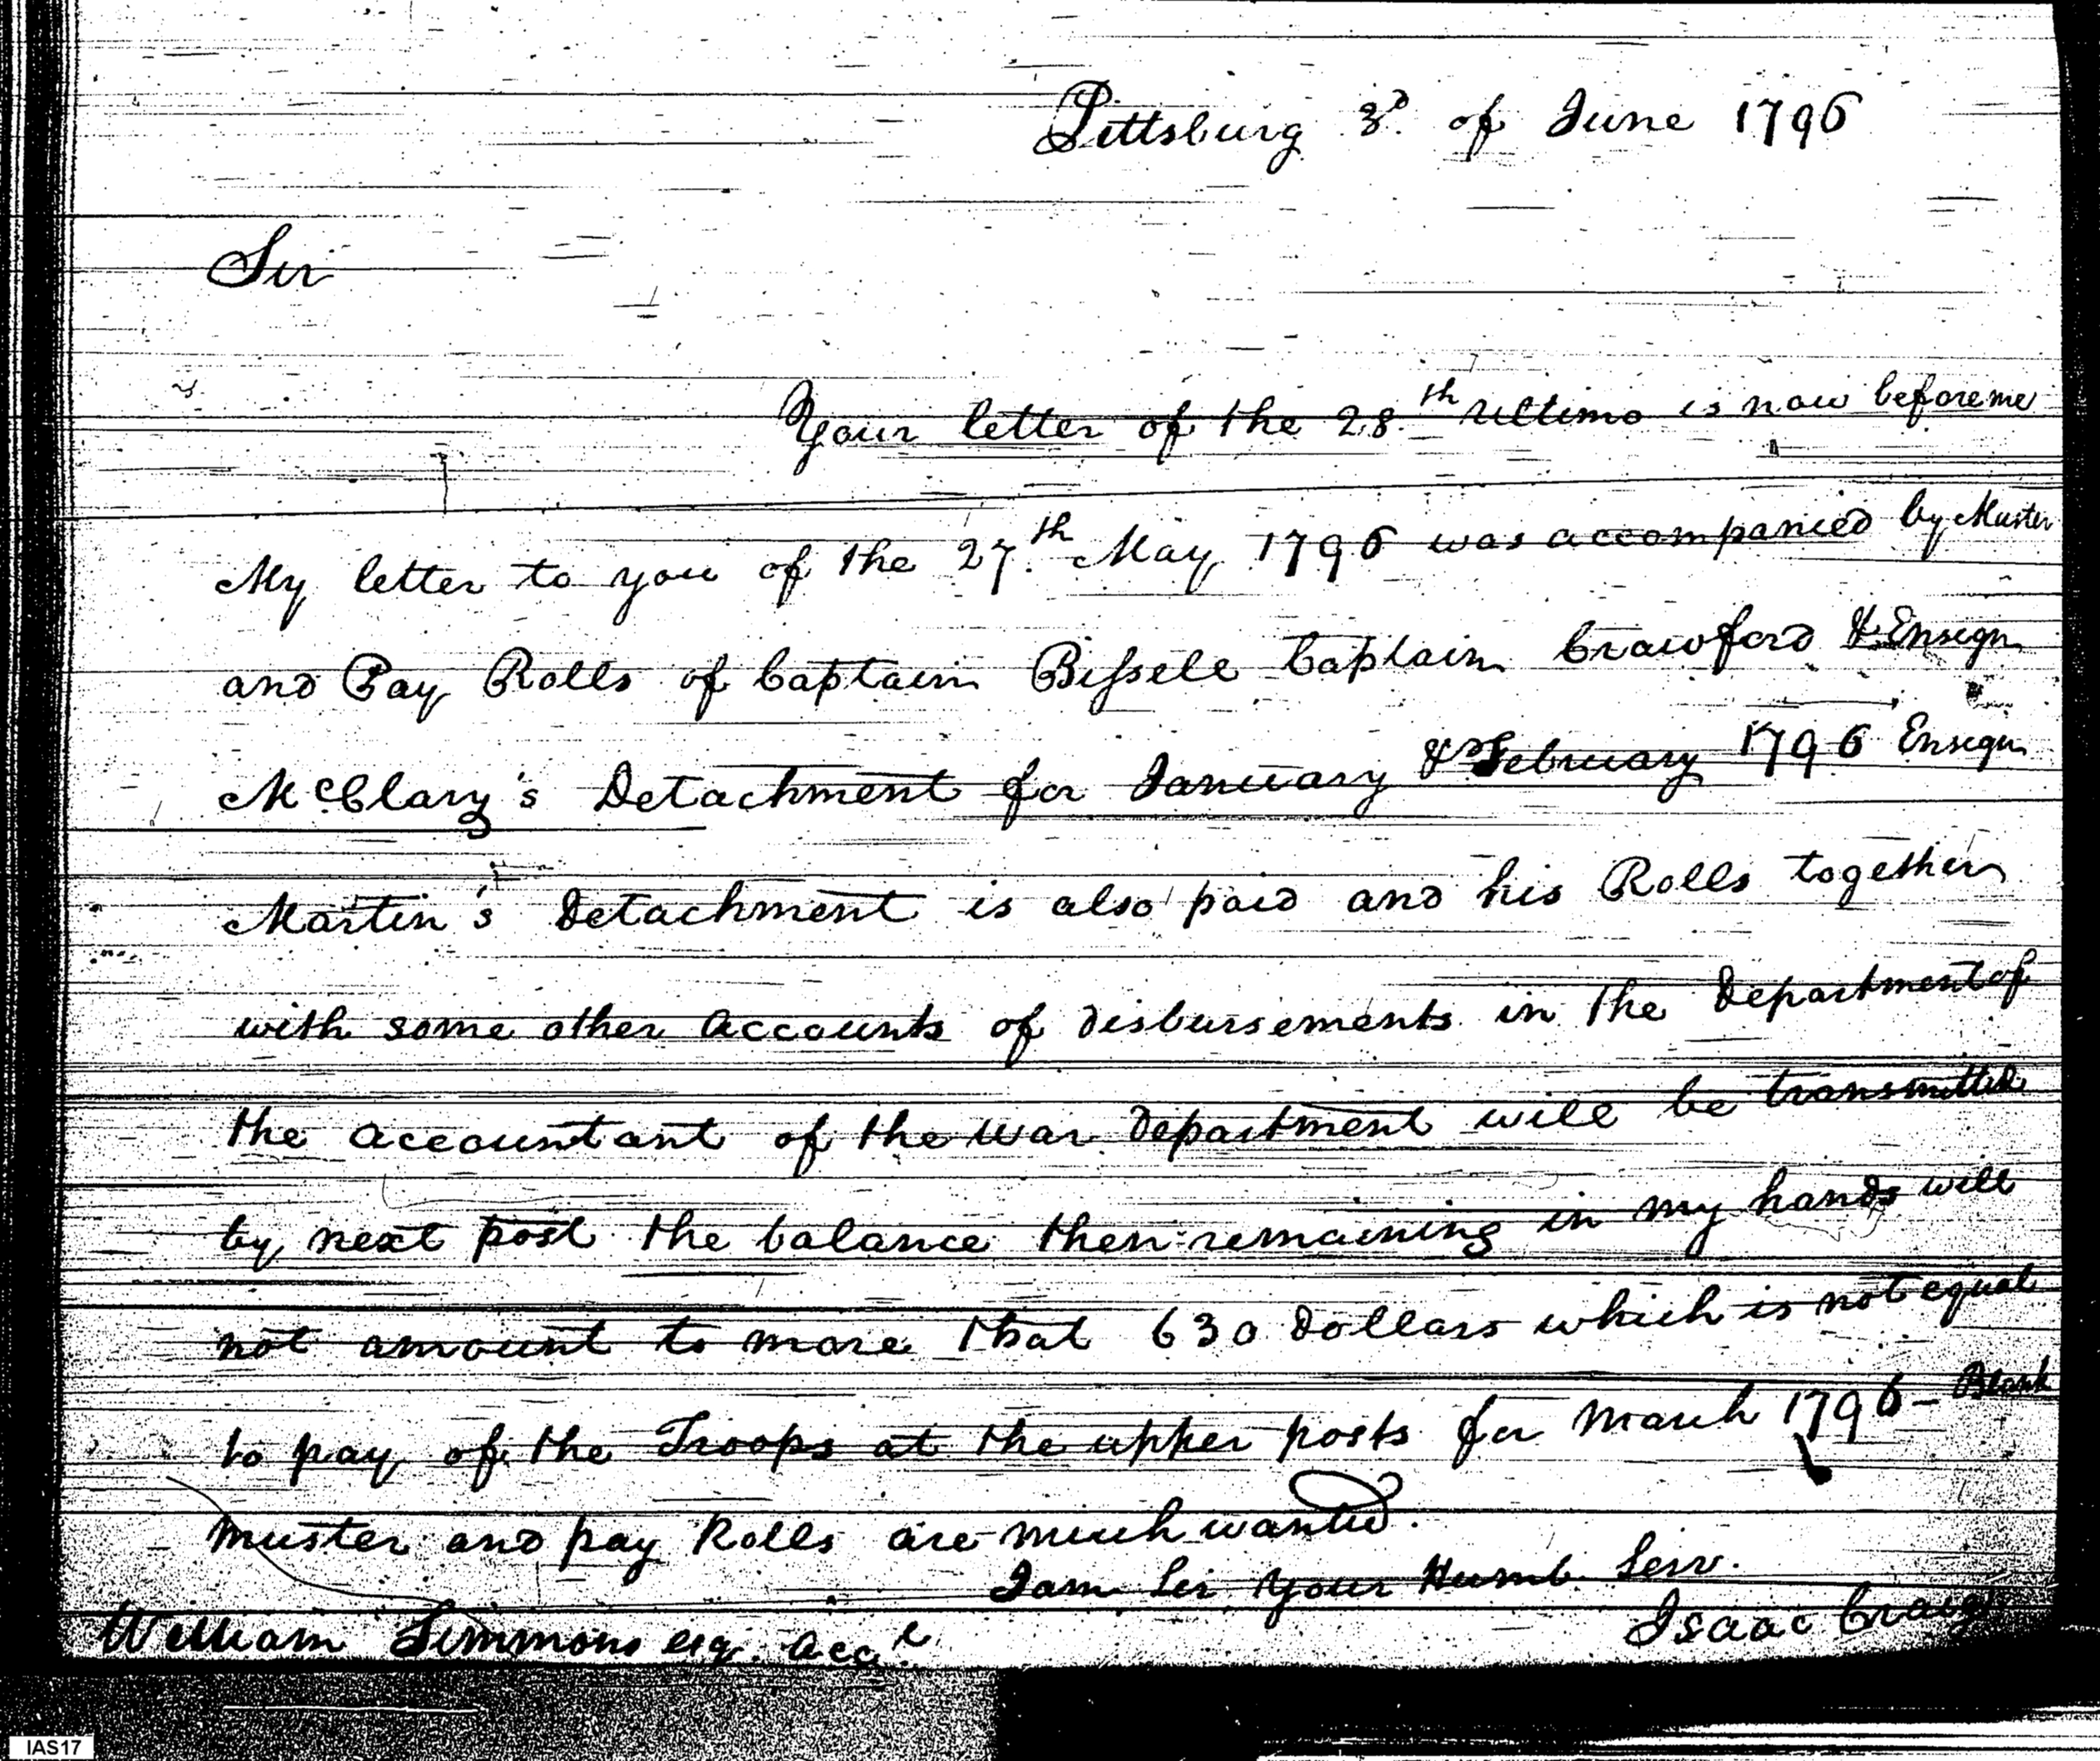 Pittsburg 3d. of June 1796
Sir
Your letter of the 28th ultimo is now before me
My letter to you of the 27th. May 1796 was accompanied by Muster
and Pay Rolls of Captain Bissell Captain Crawford & Ensign
McClary's Detachment for January & February 1796 Ensign
Martin's Detachment is also paid and his Rolls together
with some other Accounts of disbursements in the Department of
the accountant of the war Department will be transmitted
by next post the balance then remaining in my hands will
not amount to more that 630 Dollars which is not equal
to pay of the Troops at the upper posts for March 1796 - Blank
Muster and pay Rolls are much wanted.
I am Sir your Humb. Serv.
Isaac Craig
William Simmons esq. Acct.
IAS17